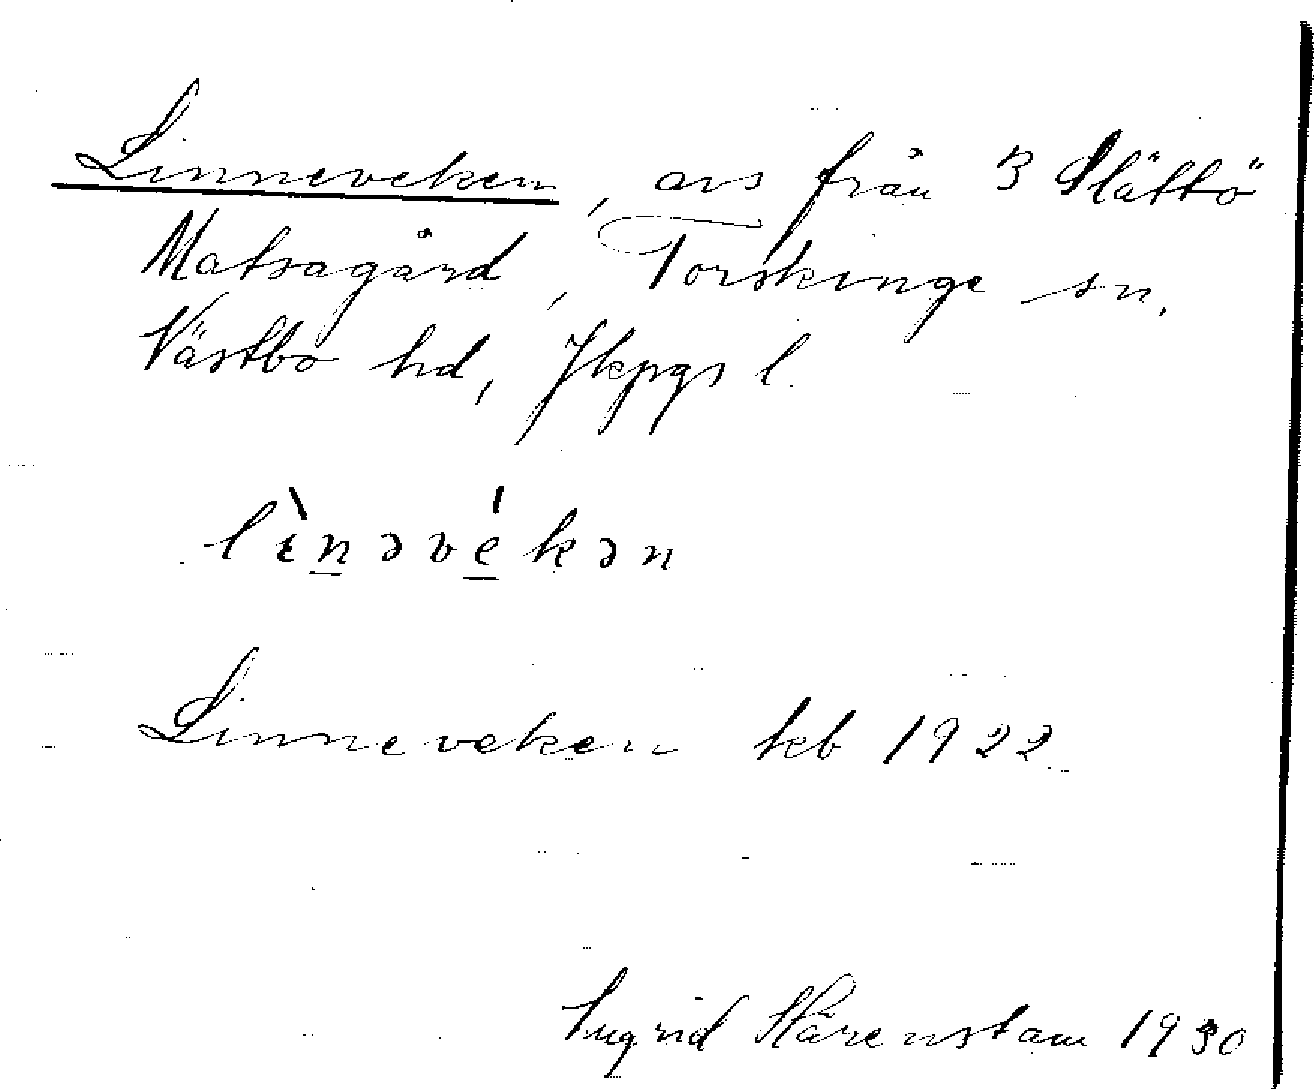 Linneveken, avs från 3 Slättö
Matsagård, Torskinge sn.
Västbo hd, Jkpgs l.
lìnəvékən
Linneveken kb 1922.
Ingrid Härenstam 1930